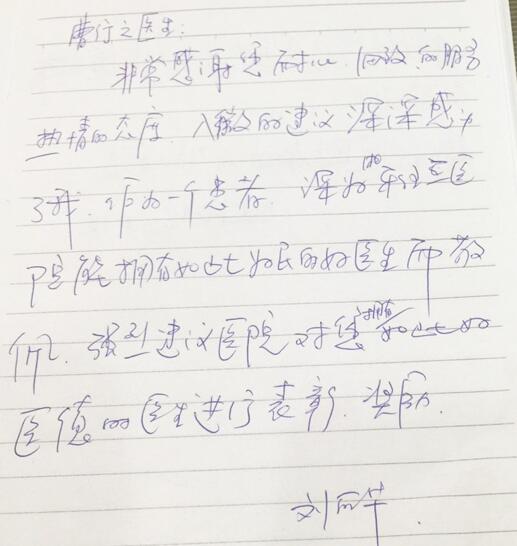 曹行之医生:
非常感谢您耐心、细致的服务
热情的态度、入微的建议深深感动
了我、作为一个患者、深为
院能拥有如此为民的好医生而敬
佩、强烈建议医院对您拥有如此好
医德的医生进行表彰、奖励.
刘丽华.